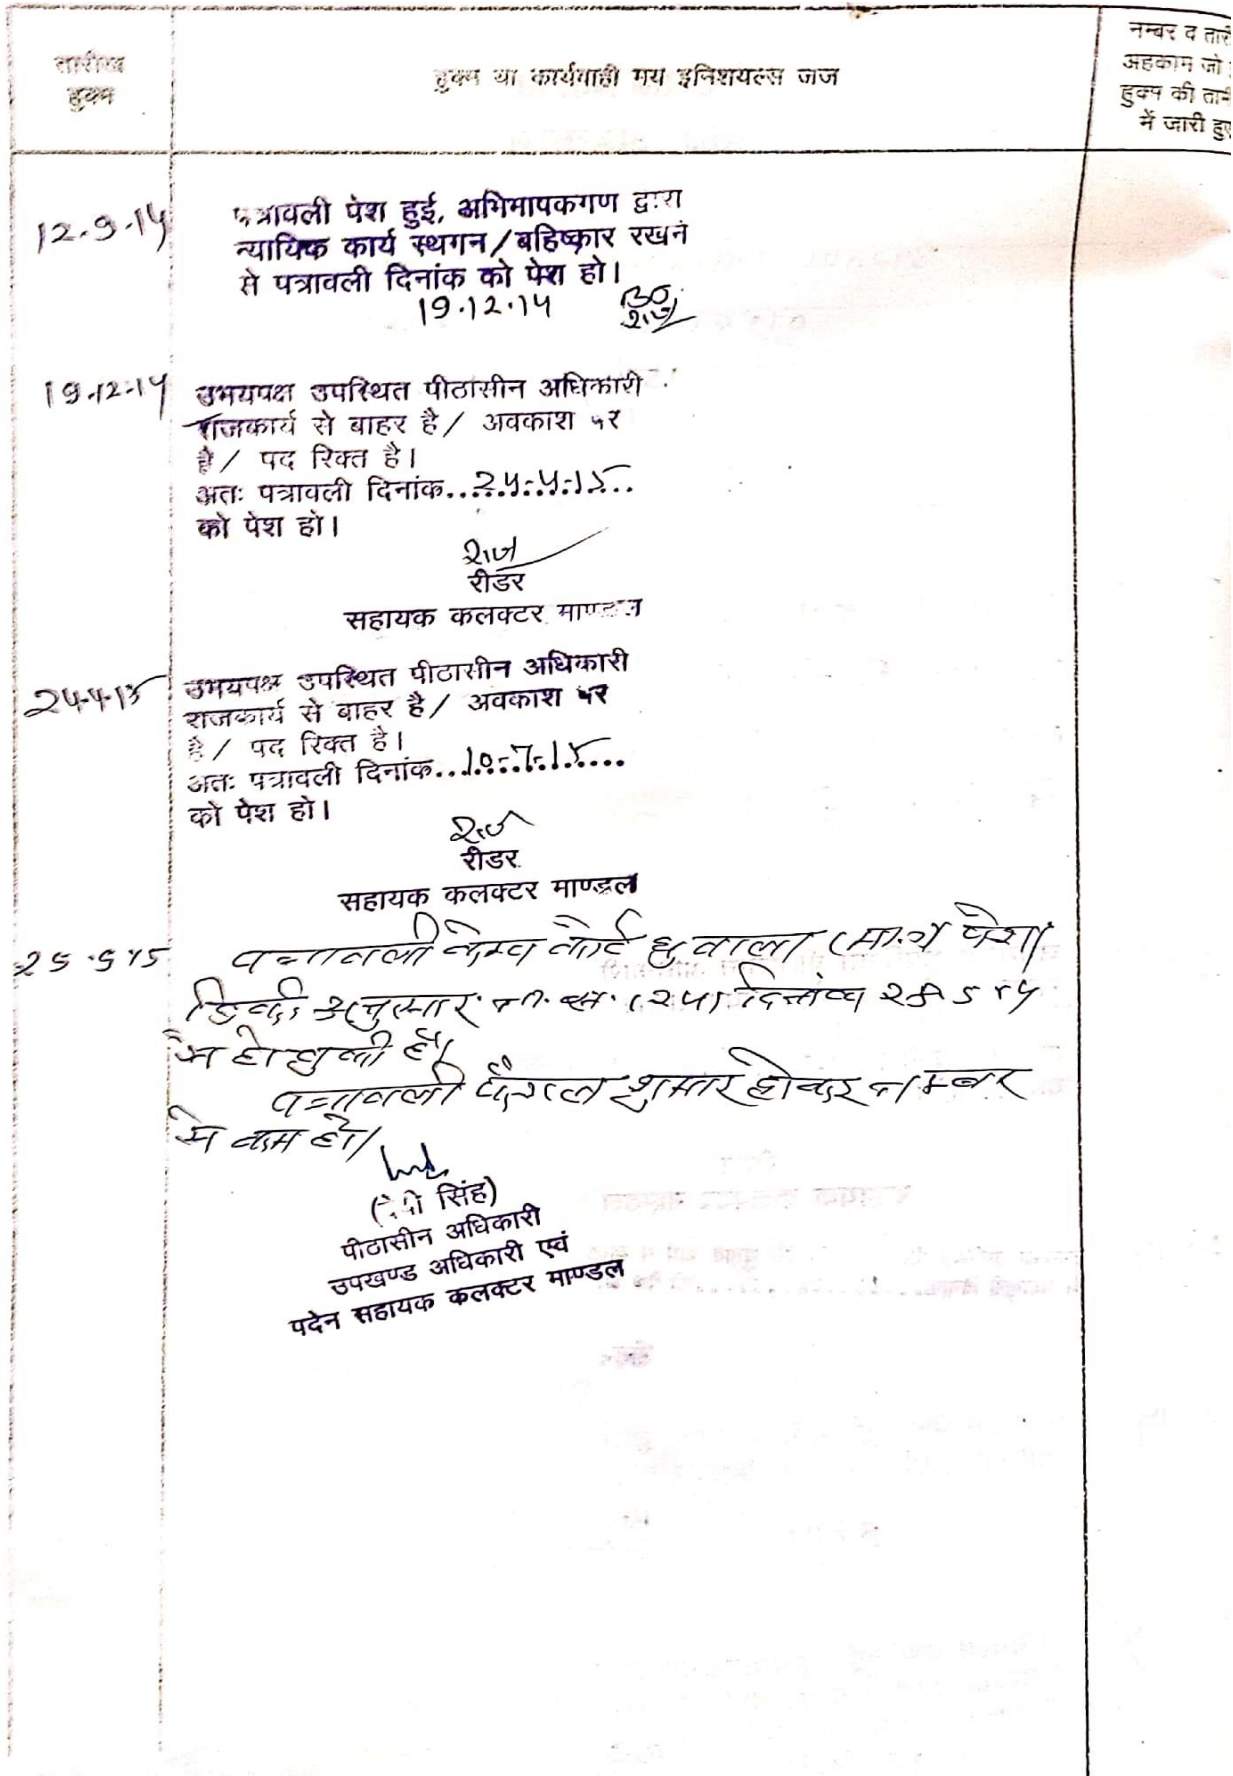 तारीख
हुक्म
हुक्म या कार्यवाही मय इनिशयल्स जज
नम्बर व तारी
अहकाम जो
हुक्म की तामी
में जारी हुए
12.9.14
पत्रावली पेश हुई, अभिभाषकगण द्वारा
न्यायिक कार्य स्थगन/बहिष्कार रखने
से पत्रावली दिनांक को पेश हो।
19.12.14
19.12.14
उभयपक्ष उपस्थित पीठासीन अधिकारी
राजकार्य से बाहर है/ अवकाश पर
है/ पद रिक्त है।
अतः पत्रावली दिनांक..24-4-15..
को पेश हो।
रीडर
सहायक कलक्टर माण्डल
24-4-15
उभयपक्ष उपस्थित पीठासीन अधिकारी
राजकार्य से बाहर है/ अवकाश पर
है/ पद रिक्त है।
अतः पत्रावली दिनांक...10-7-15....
को पेश हो।
रीडर
सहायक कलक्टर माण्डल
25.5.15
पत्रावली केम्प कोर्ट पेश।
अनुसार दिनांक
में हो चुकी है।
पत्रावली फैसल शुमार होकर नम्बर
से कम हो।
सिंह)
पीठासीन अधिकारी
उपखण्ड अधिकारी एवं
पदेन सहायक कलक्टर माण्डल